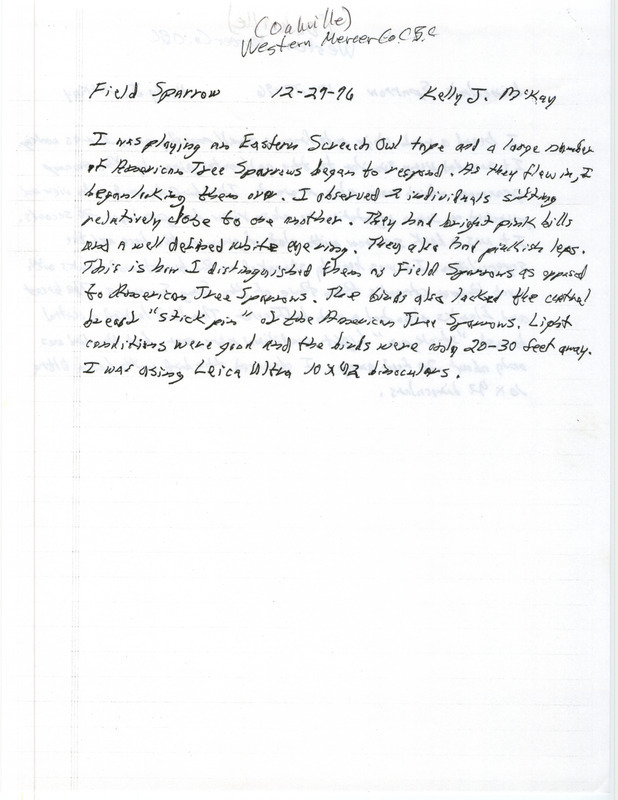 (Oakville)
Western Mercer Co. C.B.C
Field Sparrow 12-29-96 Kelly J. McKay
I was playing an Eastern Screech Owl tape and a large number
of American Tree Sparrows began to respond. As they flew in, I
began looking them over. I observed 2 individuals sitting
relatively close to one another. They had bright pink bills
and a well defined white eye ring. They also had pinkish legs.
This is how I distinguished them as Field Sparrows as opposed
to American Tree Sparrows. The birds also lacked the central
breast "stick pin" of the American Tree Sparrows. Light
conditions were good and the birds were only 20-30 feet away.
I was using Leica Ultra 10 x 42 binoculars.